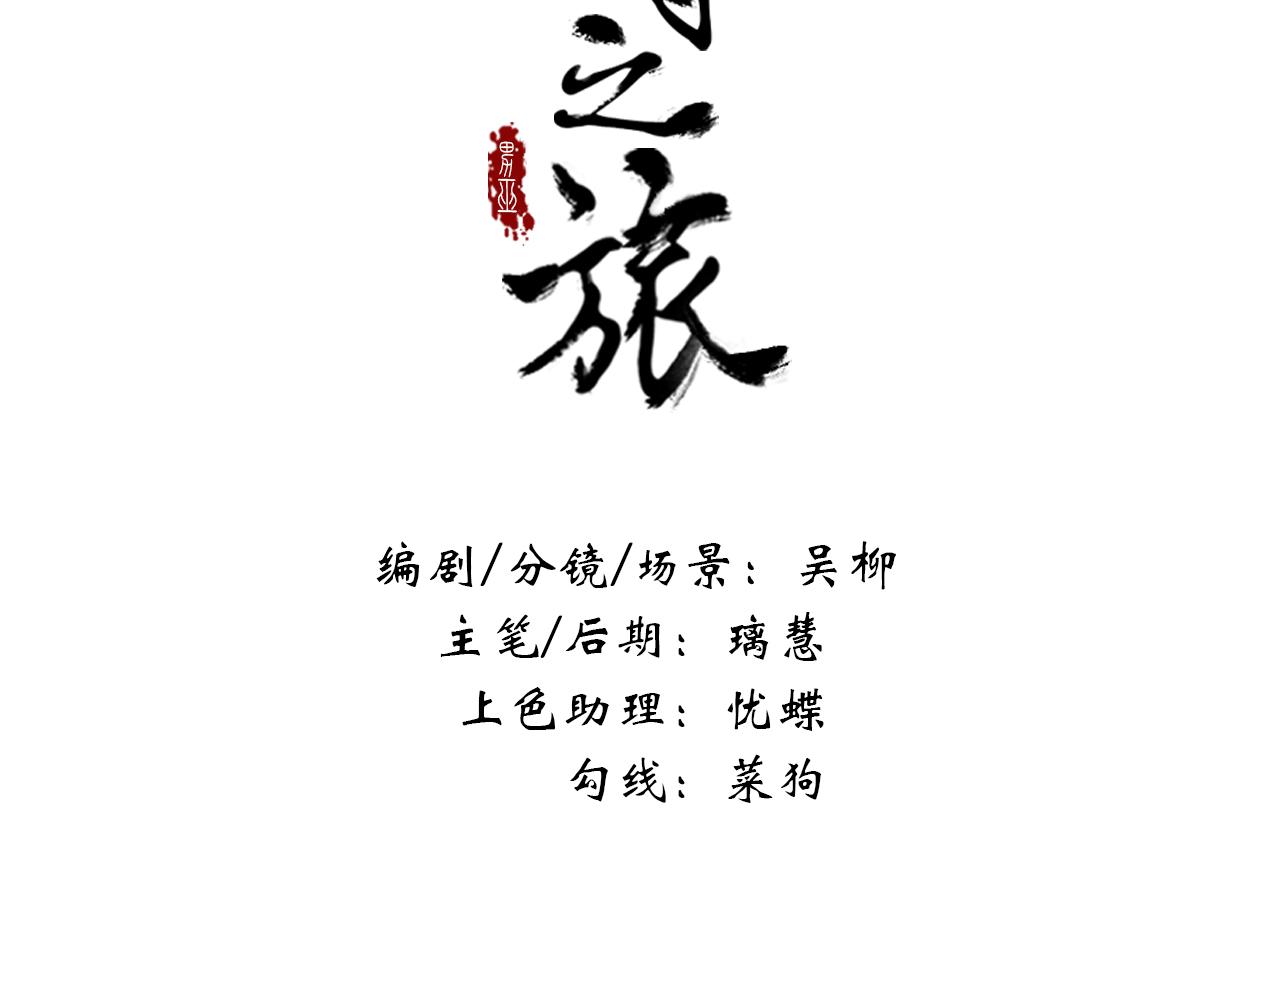 之
旅
男巫
编剧/分镜/场景：吴柳
主笔/后期：璃慧
上色助理：忧蝶
勾线：菜狗